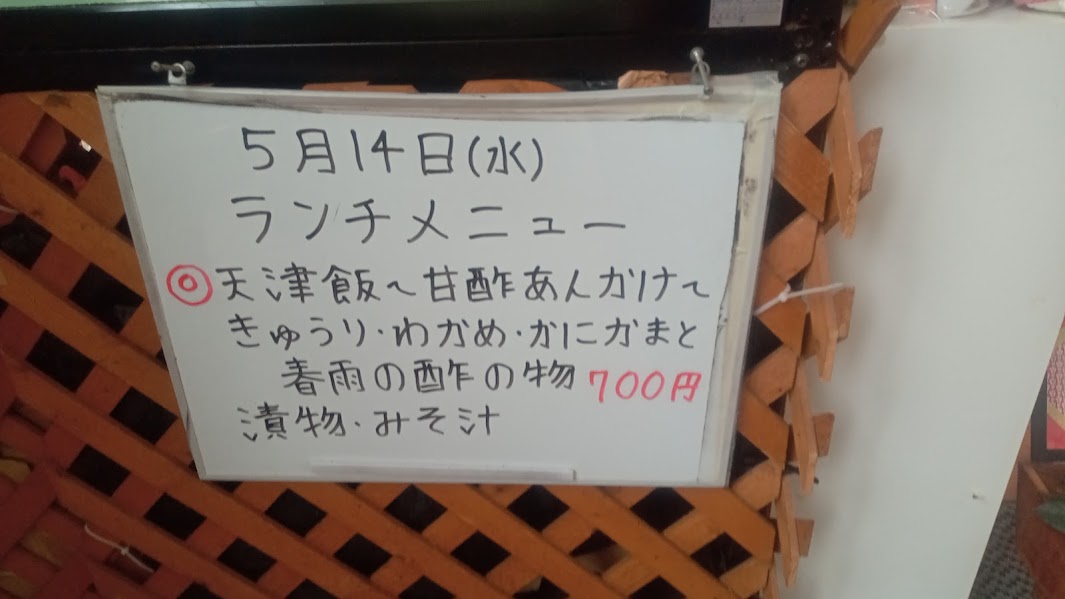 5月14日(水)
ランチメニュー
◎天津飯~甘酢あんかけ~
きゅうり・わかめ・かにかまと
春雨の酢の物 700円
漬物・みそ汁